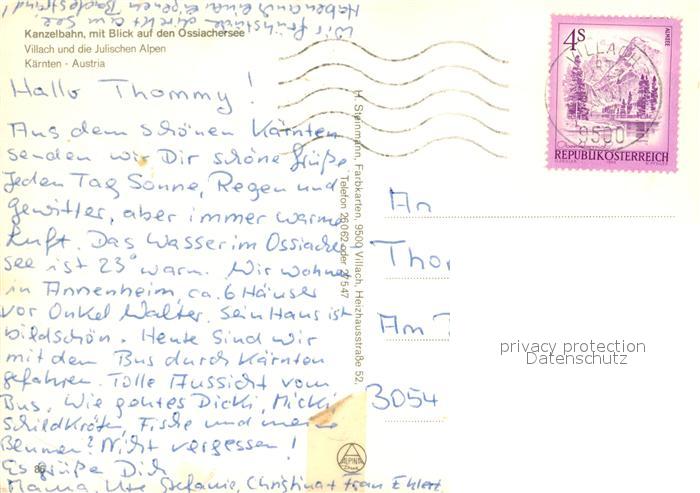 Wir frühstücken direkt am See.
Haben einen eigenen Badestrand
Kanzelbahn, mit Blick auf den Ossiachersee
Villach und die Julischen Alpen
Kärnten - Austria
Hallo Thommy!
Aus dem schönen Kärnten
senden wir Dir schöne Grüße
Jeden Tag Sonne, Regen und
gewitter, aber immer warme
Luft. Das Wasser im Ossiacher
see ist 23° warm. Wir wohnen
in Annenheim, ca. 6 Häuser
vor Onkel Walter. Sein Haus ist
bildschön. Heute sind wir
mit dem Bus durch Kärnten
gefahren. Tolle Aussicht vom
Bus. Wie gehts Dicki, Micki,
Schildkröte, Fische und meine
Blumen? Nicht vergessen!
Es grüße Dich
Mama, Ute Stefanie, Christina + Frau Ehlert
86
H. Steinmann, Farbkarten, 9500 Villach, Heizhausstraße 52,
Telefon 26062 oder 27547
ALPINA
4S
ALMSEE
VILLACH
9500
REPUBLIK ÖSTERREICH
An
Tho
Am
3054
privacy protection
Datenschutz